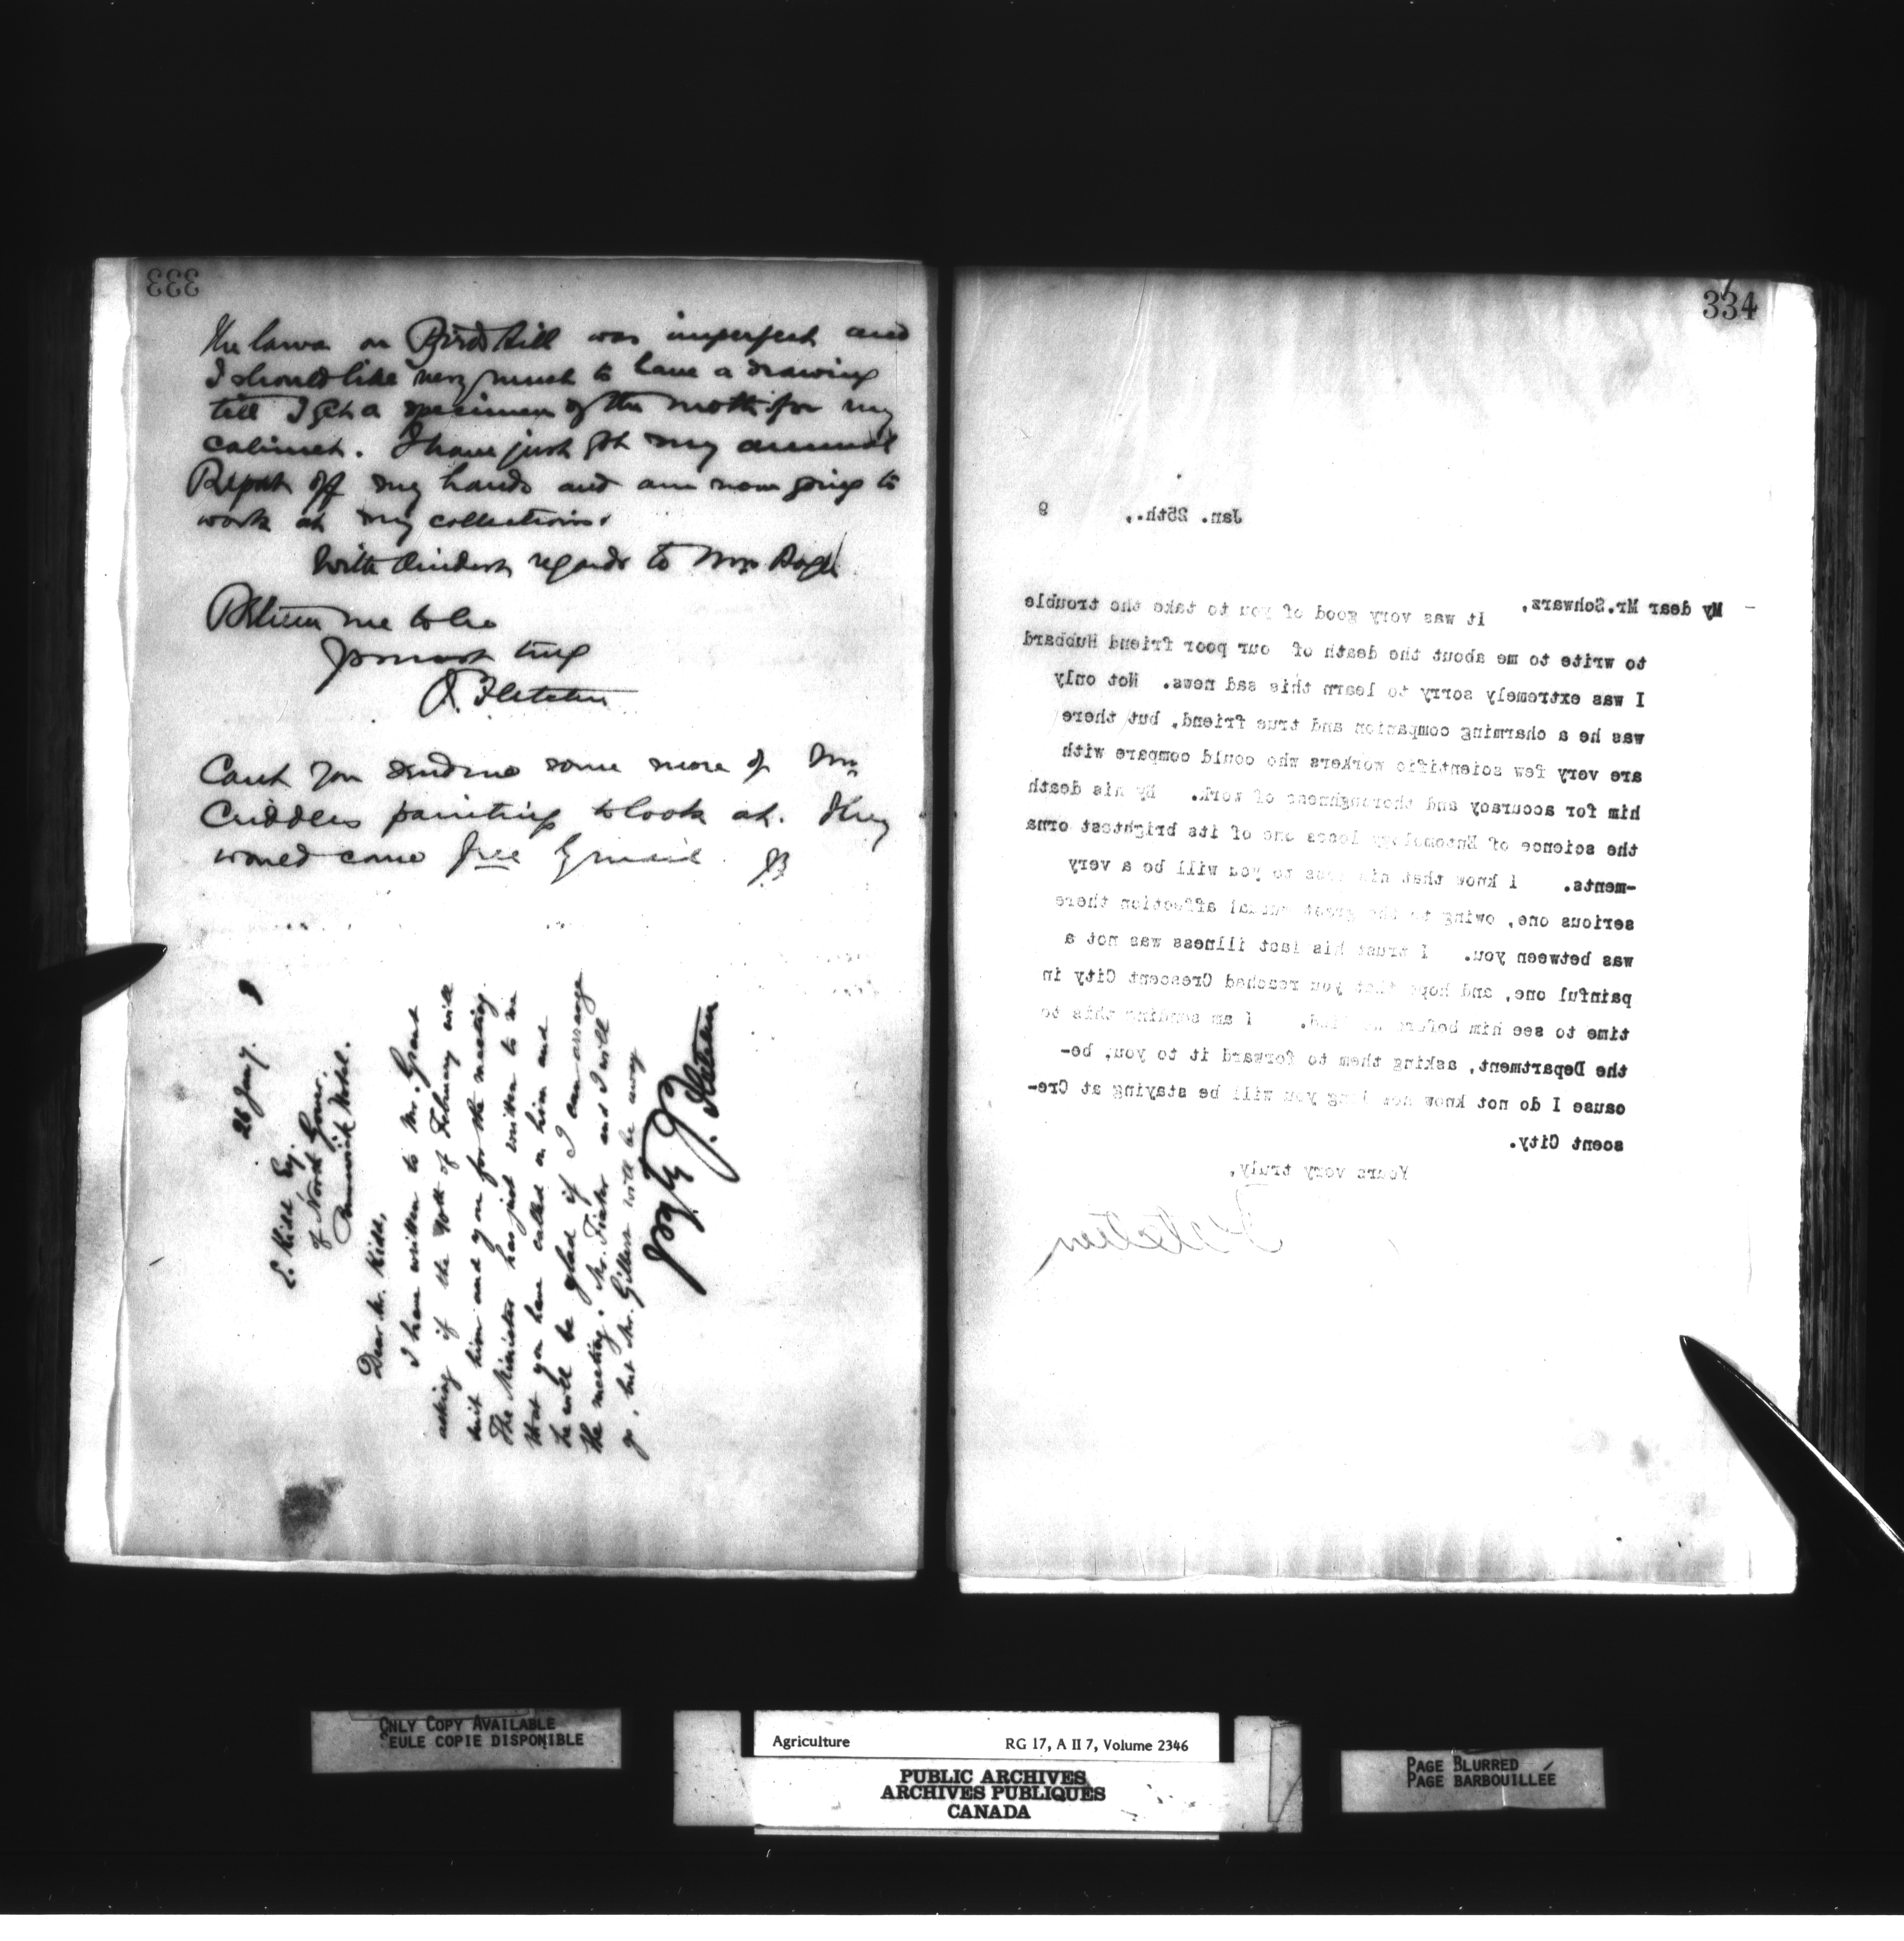 333
The larva on Birds Hill was imperfect and
I should like very much to have a drawing
till I get a specimen of the moth for my
cabinet. I have just got my annual
Report off my hands and am now going to
work at my collections.
With kindest regards to Mrs
Believe me to be
Yours most truly
J. Fletcher
Cant you send me some more of Mr
Criddles paintings to look at. They
would come free by mail. JF
26 Jany. 9
E. Kidd Esq.
of North Gower.
Dear Mr. Kidd,
I have written to Mr. Grant
asking if the of February will
suit him and you for the meeting.
The Minister has just written to me
that you have called on him and
he will be glad if I can arrange
the meeting. Mr. Fisher and I will
go, but Mr. Gilbert will be away
J. Fletcher
334
Jan. 25th., 9
My dear Mr. Schwarz,
It was very good of you to take the trouble
to write to me about the death of our poor friend Hubbard
I was extremely sorry to learn this sad news. Not only
was he a charming companion and true friend, but there
are very few scientific workers who could compare with
him for accuracy and thoroughness of work. By his death
the science of Entomology loses one of its brightest orna
-ments. I know that his loss to you will be a very
serious one, owing to the great mutual affection there
was between you. I trust his last illness was not a
painful one, and hope that you reached Crescent City in
time to see him before he died. I am sending this to
the Department, asking them to forward it to you, be-
cause I do not know how long you will be staying at Cre-
scent City.
Yours very truly,
J. Fletcher
ONLY COPY AVAILABLE
SEULE COPIE DISPONIBLE
Agriculture RG 17, A II 7, Volume 2346
PUBLIC ARCHIVES
ARCHIVES PUBLIQUES
CANADA
PAGE BLURRED
PAGE BARBOUILLÉE